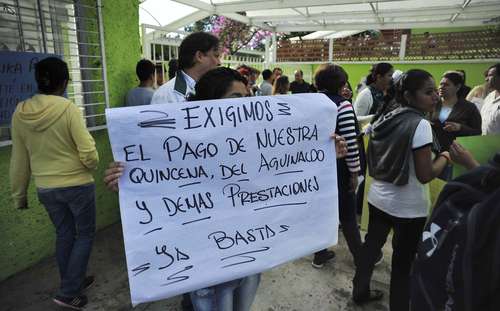 EXIGIMOS
EL PAGO DE NUESTRA
QUINCENA, DEL AGUINALDO
Y DEMAS PRESTACIONES
YA BASTA